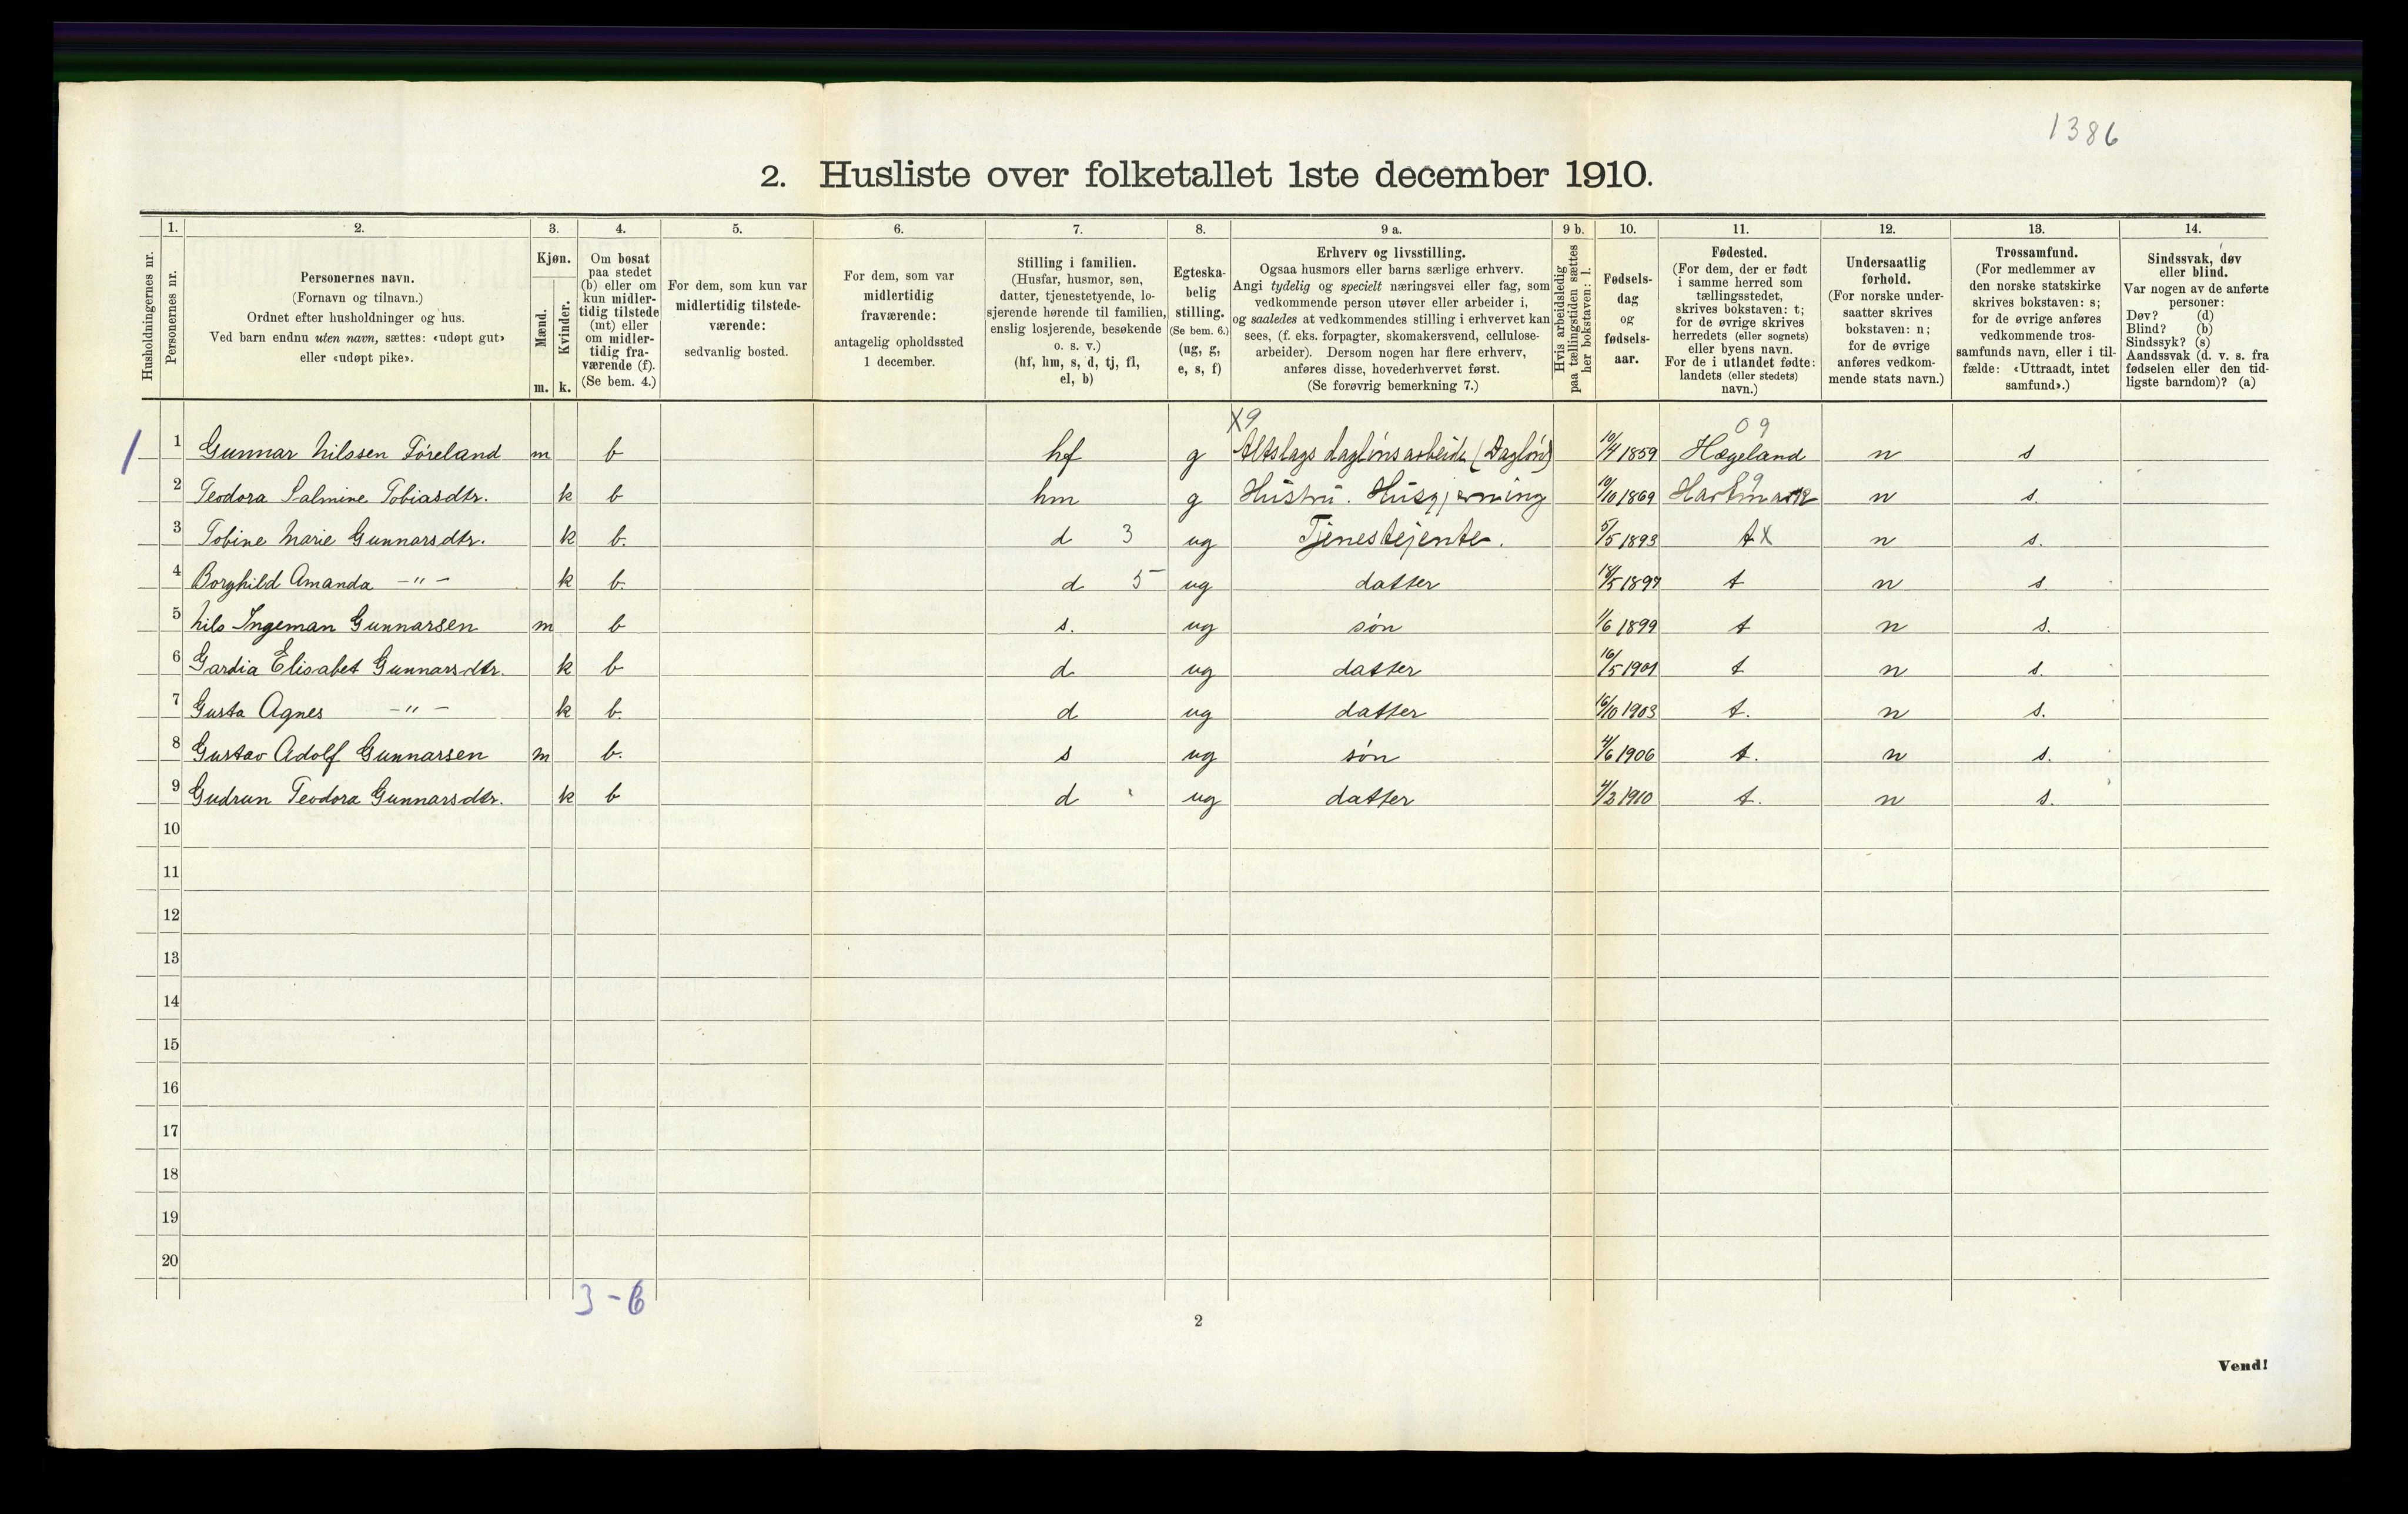 1386
2. Husliste over folketallet 1ste december 1910.
Husholdningernes nr.
1. Personernes nr.
2. Personernes navn. (Fornavn og tilnavn.) Ordnet efter husholdninger og hus. Ved barn endnu uten navn, sættes: «udøpt gut» eller «udøpt pike».
3. Kjøn. Mænd. m. Kvinder. k.
4. Om bosat paa stedet (b) eller om kun midlertidig tilstede (mt) eller om midlertidig fraværende (f). (Se bem. 4.)
5. For dem, som kun var midlertidig tilstedeværende: sedvanlig bosted.
6. For dem, som var midlertidig fraværende: antagelig opholdssted 1 december.
7. Stilling i familien. (Husfar, husmor, søn, datter, tjenestetyende, losjerende hørende til familien, enslig losjerende, besøkende o. s. v.) (hf, hm, s, d, tj, fl, el, b)
8. Egteskabelig stilling. (Se bem. 6.) (ug, g, e, s, f)
9 a. Erhverv og livsstilling. Ogsaa husmors eller barns særlige erhverv. Angi tydelig og specielt næringsvei eller fag, som vedkommende person utøver eller arbeider i, og saaledes at vedkommendes stilling i erhvervet kan sees, (f. eks. forpagter, skomakersvend, cellulosearbeider). Dersom nogen har flere erhverv, anføres disse, hovederhvervet først. (Se forøvrig bemerkning 7.)
9 b. Hvis arbeidsledig paa tællingstiden sættes her bokstaven: l.
10. Fødselsdag og fødselsaar.
11. Fødested. (For dem, der er født i samme herred som tællingsstedet, skrives bokstaven: t; for de øvrige skrives herredets (eller sognets) eller byens navn. For de i utlandet fødte: landets (eller stedets) navn.)
12. Undersaatlig forhold. (For norske undersaatter skrives bokstaven: n; for de øvrige anføres vedkommende stats navn.)
13. Trossamfund. (For medlemmer av den norske statskirke skrives bokstaven: s; for de øvrige anføres vedkommende trossamfunds navn, eller i tilfælde: «Uttraadt, intet samfund».)
14. Sindssvak, døv eller blind. Var nogen av de anførte personer: Døv? (d) Blind? (b) Sindssyk? (s) Aandssvak (d. v. s. fra fødselen eller den tidligste barndom)? (a)
X9 09
1 1 Gunnar Nilssen Föreland m b hf g Altslags daglönsarbeide (Daglön) 10/4 1859 Hægeland n s
9
2 Teodora Salmine Tobiasdtr. k b hm g Hustru. Husgjerning 10/10 1869 Hartmark n s.
3 Tobine Marie Gunnarsdtr. k b. d 3 ug Tjenestejente. 5/5 1893 t X n s.
4 Borghild Amanda -"- k b. d 5 ug datter 18/5 1897 t n s.
5 Nils Ingeman Gunnarsen m b s. ug søn 1/6 1899 t n s.
6 Gardia Elisabet Gunnarsdtr. k b d ug datter 16/5 1901 t n s.
7 Gusta Agnes -"- k b. d ug datter 15/10 1903 t. n s.
8 Gustav Adolf Gunnarsen m b. s ug søn 4/6 1906 t. n s.
9 Gudrun Teodora Gunnarsdtr. k b d ug datter 4/2 1910 t. n s.
10
11
12
13
14
15
16
17
18
19
20
3-6
2
Vend!